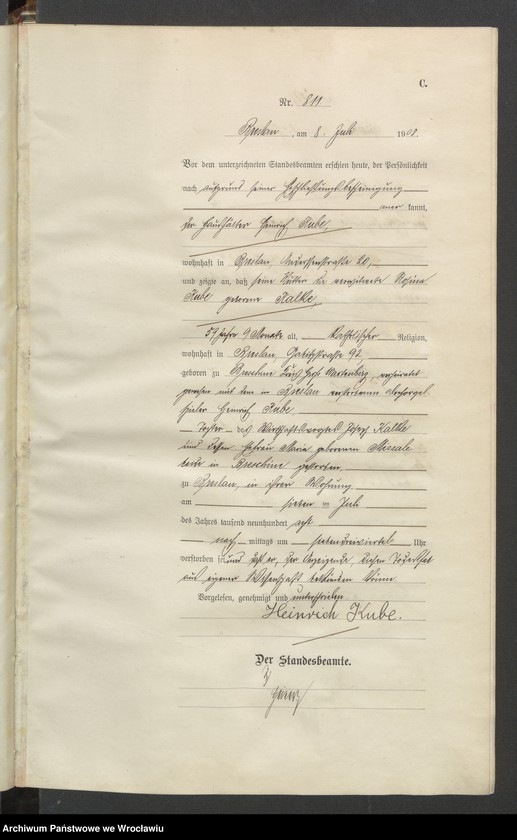 C.
Nr. 811
Breslau, am 8. Juli 1908.
Vor dem unterzeichneten Standesbeamten erschien heute, der Persönlichkeit
nach aufgrund seiner Eheschließungsbescheinigung
anerkannt,
der Haushälter Heinrich Kube,
wohnhaft in Breslau, 20,
und zeigte an, daß seine Mutter die verwitwete Rosina
Kube geborene Kalke,
59 Jahre 9 Monate alt, katholischer Religion,
wohnhaft in Breslau, 92,
geboren zu Kreis Groß Wartenberg, verheiratet
gewesen mit dem in Breslau verstorbenen Drehorgel
spieler Heinrich Kube
Tochter des Wirtschaftsvogtes Joseph Kalke
und dessen Ehefrau Maria geborenen
beide in verstorben
zu Breslau, in ihrer Wohnung
am siebenten Juli
des Jahres tausend neunhundert acht
nach mittags um siebendreiviertel Uhr
verstorben sei und daß er, der Anzeigende, diesen Todesfall
aus eigener Wissenschaft bekunden könne.
Vorgelesen, genehmigt und unterschrieben
Heinrich Kube.
Der Standesbeamte.
Archiwum Państwowe we Wrocławiu